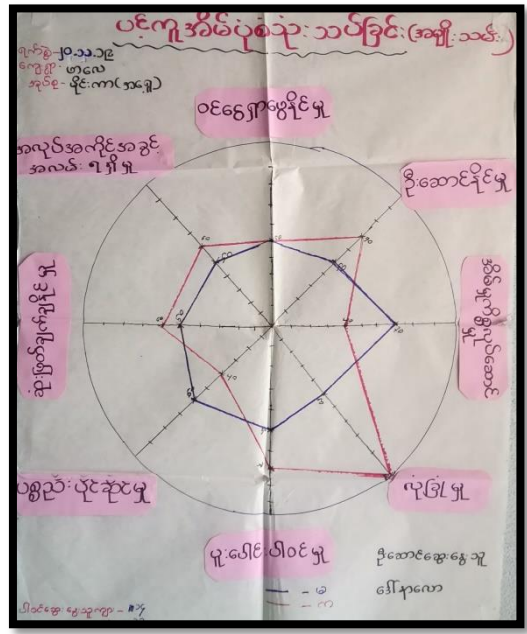 ပင့်ကူအိမ်ပုံစံသုံးသပ်ခြင်း (အမျိုးသမီး)
ရက်စွဲ - ၂၀.၁၁.၁၉
ကျေးရွာ - ဟာလေ
အုပ်စု - မိုင်းကာ (အရှေ့)
ဝင်ငွေရှာဖွေနိုင်မှု
အလုပ်အကိုင်အခွင့်
အလမ်းရရှိမှု
ဦးဆောင်နိုင်မှု
ဆုံးဖြတ်ချက်ချနိုင်မှု
အိမ်မှုကိစ္စလုပ်ဆောင်
မှု
ပစ္စည်းပိုင်ဆိုင်မှု
လုံခြုံမှု
ပူးပေါင်းပါဝင်မှု
ဦးဆောင်ဆွေးနွေးသူ
ဒေါ်နာလော
မ
က
ပါဝင်ဆွေးနွေးသူ